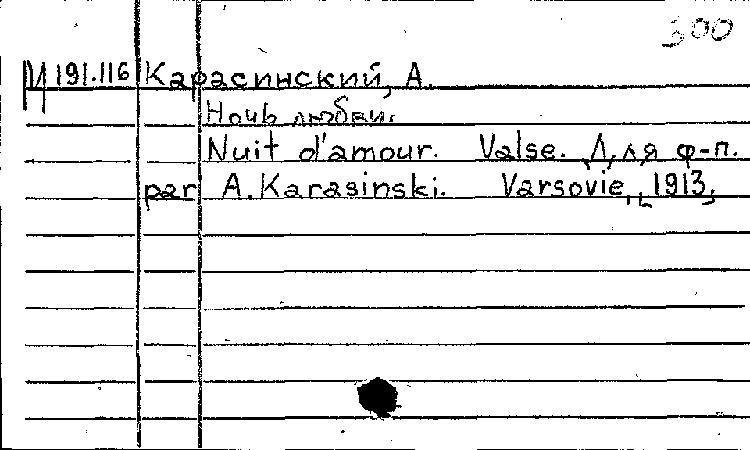 300
М 191.116 Карасинский, А.
Ночь любви.
Nuit d'amour. Valse. Для ф-п.
par A. Karasinski. Varsovie, [1913]